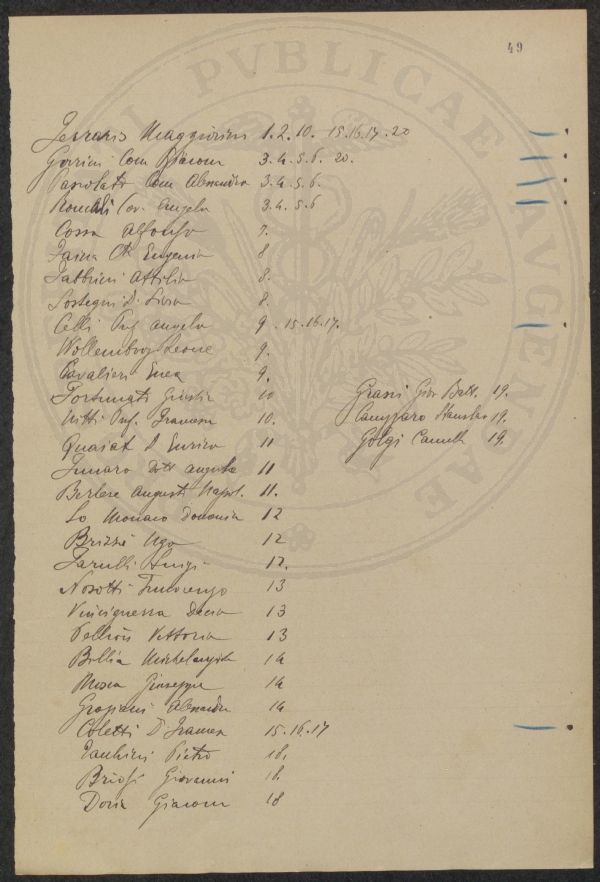 49
PVBLICAE
AVGENDAE
Ferraris Maggiorino 1.2.10. 15.16.17.20
Gorrini Com Giacomo 3.4.5.6. 20.
Com Alessandro 3.4.5.6.
Cav. Angelo 3.4.5.6
Cossa Alfonso 7.
Faina Eugenio 8
Fabbrini Attilio 8.
Sostegni D. Livio 8.
Celli Prof Angelo 9. 15.16.17.
Wollemborg Leone 9.
Cavalieri Enea 9.
Fortunato Giustino 10
Nitti Prof. Francesco 10.
Quaiat D Enrico 11
Funaro Dott Angelo 11
Berlese Augusto Napol. 11.
Lo Monaco Domenico 12
Brizzi Ugo 12
Luigi 12.
Nosotti Innocenzo 13
Vinciguerra Decio 13
Vittorio 13
Billia Michelangelo 14
Mosca Giuseppe 14
Graziani Alessandro 14
Coletti D Francesco 15.16.17
Pietro 18.
Briosi Giovanni 18.
Doria Giacomo 18
Grassi Giov Batt. 19.
Cannizzaro Stanislao 19.
Golgi Camillo 19.